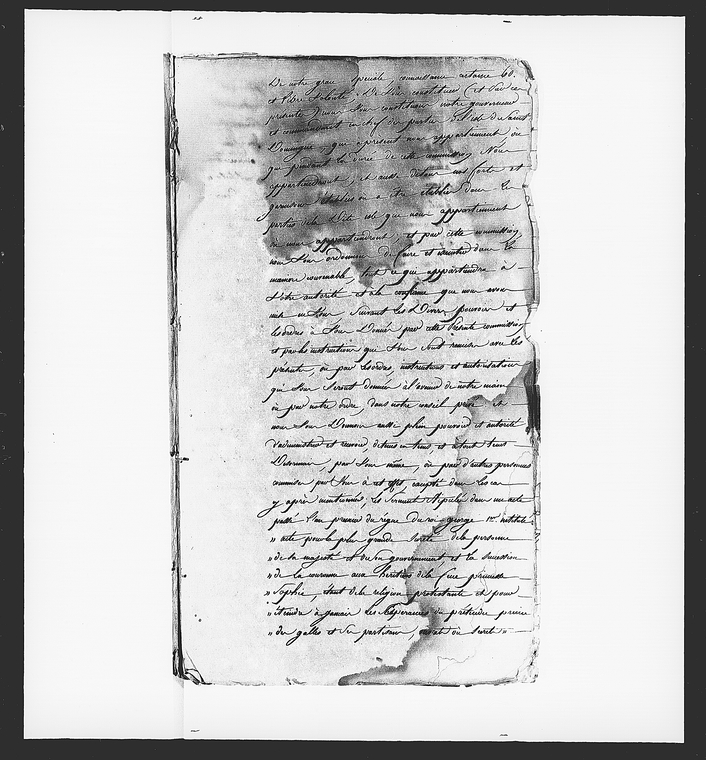 De notre grace speciale, connaissance certaine &c.
et libre volonté. De Vous constituer (et Par ces
presente) nous Vous constituons notre gouverneur
et commandant en chef des parties de l'isle de Saint
Domingue qui apresent nous appartiennent, ou
qui pendant la durée de cette commission Nous
appartiendront, et aussi de tous nos forts et
garnisons établies ou à être établies dans les
parties de la dite isle qui nous appartiennent
ou nous appartiendront, et par cette commission,
nous Vous ordonnons de faire et executer dans la
maniere convenable, tout ce qui appartiendra à
Votre autorité et à la confiance que nous avons
mis en Vous Suivant les Divers pouvoirs et
les ordres à Vous Donnés par cette Présente commission
et par les instructions que Vous Sont remises avec les
présentes, ou par les ordres, instructions et autorisations
qui Vous Seront donnés à l'avenir de notre main
ou par notre ordre, dans notre conseil privé et
nous Vous Donnons aussi plein pouvoir et autorité
d'administrer et recevoir, de tems en tems, et à tout tems
Désormais, par Vous même, ou par d'autres personnes
commises par Vous à cet effet, excepté dans les cas
cy après mentionnés, les Serment Stipulés dans un acte
passé l'an premier du règne du roi george 1er intitulé
" acte pour la plus grande Sureté de la personne
" de Sa majesté et du Son gouvernement, et la Succession
" de la couronne aux heritiers de la feue princesse
" Sophie, étant de la religion protestante et pour
" éteindre à jamais les Espérances du prétendu prince
" des galles et Ses partisans, ouverts ou Secrets "